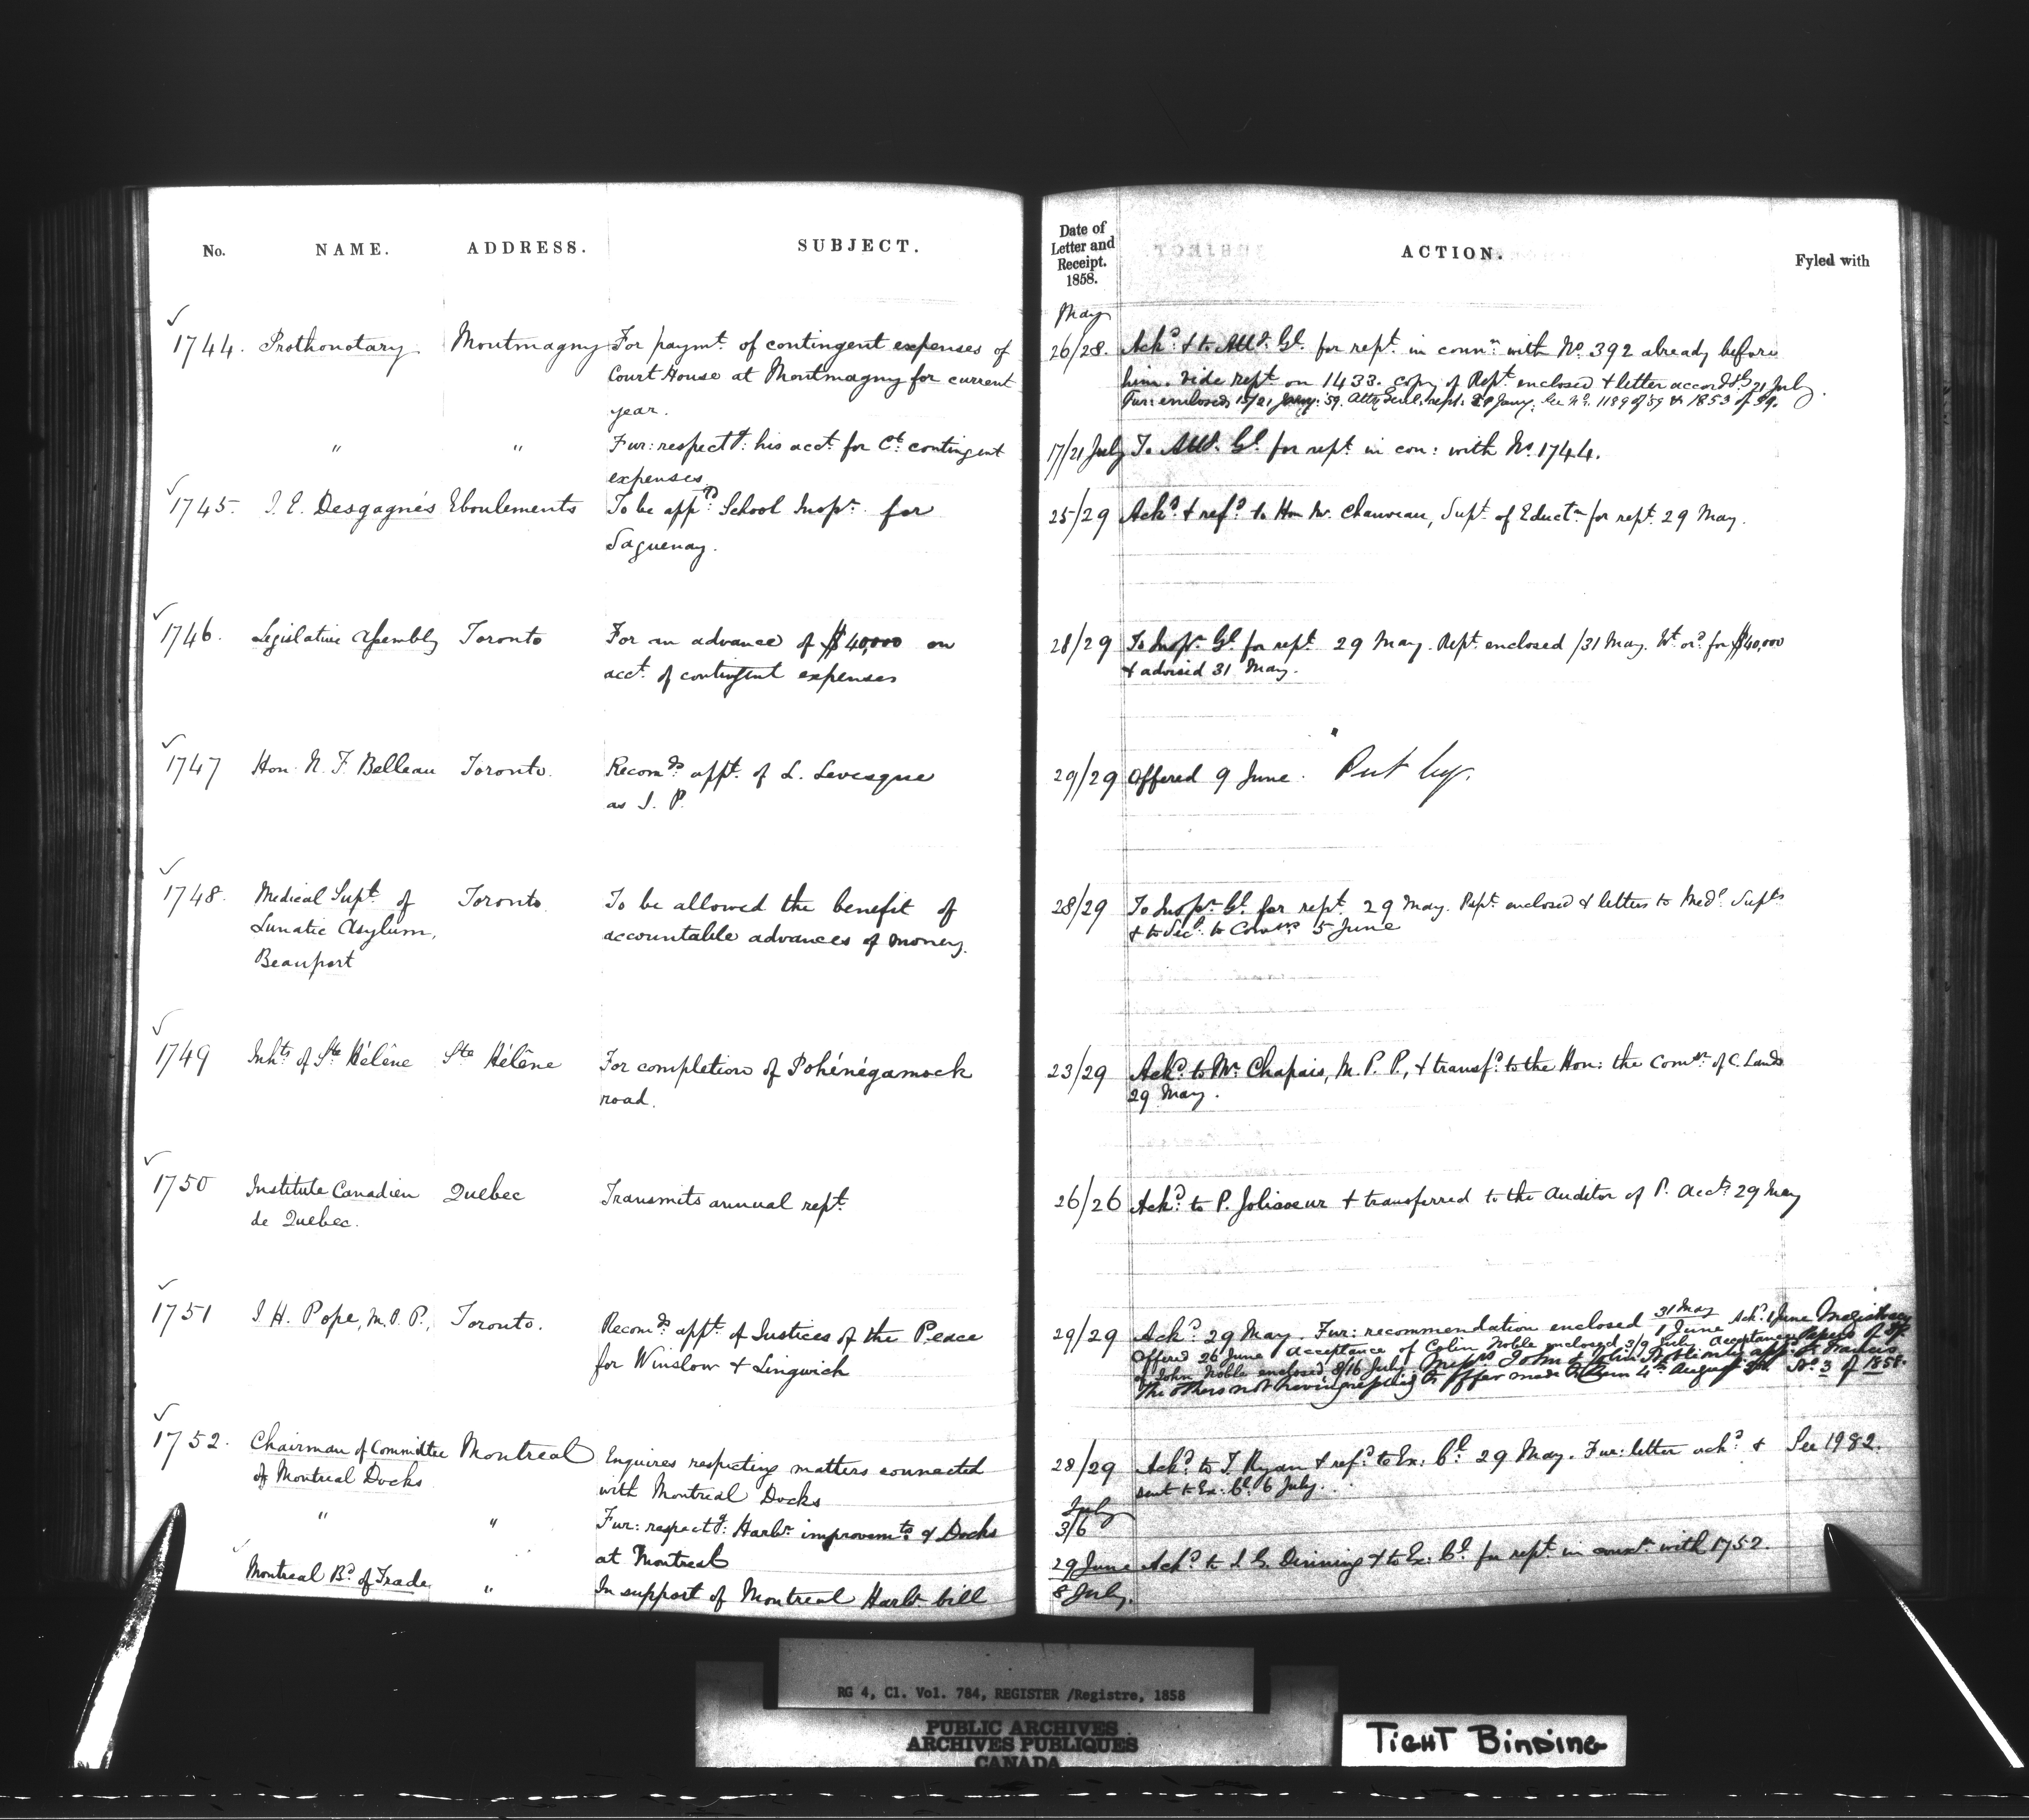 No. NAME. ADDRESS. SUBJECT.
✓
1744. Prothonotary Montmagny For paymt. of contingent expenses of
Court House at Montmagny for current
year.
" " Fur: respectg: his acct. for Ct. contingent
expenses
✓
1745. J. E. Desgagnés Eboulements To be appd. School Inspr. for
Saguenay.
✓
1746. Legislative Assembly Toronto For an advance of $40,000 on
acct. of contingent expenses
✓
1747 Hon. N. F. Belleau Toronto. Recomds. appt. of L. Levesque
as J. P.
✓
1748. Medical Supt. of Toronto. To be allowed the benefit of
Lunatic Asylum, accountable advances of money.
Beauport
✓
1749 Inhts. of Ste Hélêne Ste Hélêne For completion of Pohénégamook
road.
✓
1750 Institute Canadien Quebec Transmits annual rept.
de Quebec.
✓
1751 J. H. Pope, M.P.P., Toronto. Recomds. appt. of Justices of the Peace
for Winslow & Lingwick
✓
1752. Chairman of Committee Montreal Enquires respecting matters connected
of Montreal Docks with Montreal Docks
" " Fur: respectg: Harbr. improvemts. & Docks
at Montreal
Montreal Bd. of Trade " In support of Montreal Harbr. bill
Date of
Letter and
Receipt.
1858.
ACTION.
Fyled with
May
26/28. Ackd. & to Atty. Gl. for rept. in connn. with No. 392 already before
him. Vide rept. on 1433. Copy of Rept. enclosed & letter accordgly. 21 July.
Fur: enclosed 19/21 Jany: 59. Atty Genl. rept: 28 Jany. See No. 1189 of 59 & 1853 of 59.
17/21 July To Atty. Gl. for rept. in con: with No. 1744.
25/29 Ackd. & refd. to Hon Mr. Chauveau, Supt. of Eductn. for rept. 29 May.
28/29 To Inspr. Gl. for rept. 29 May. Rept. enclosed /31 May. Wt. ord. for $40,000
& advised 31 May.
29/29 Offered 9 June. Put by.
28/29 To Inspr. Gl. for rept. 29 May. Rept. enclosed & letters to Medl. Supts
& to Secy. to Comms. 5 June
23/29 Ackd. to Mr. Chapais, M.P.P., & transfd. to the Hon: the Comr. of C. Lands
29 May.
26/26 Ackd. to P. Jolicoeur & transferred to the Auditor of P. Accts. 29 May
29/29 Ackd. 29 May. Fur: recommendation enclosed 31 May Ackd. 1 June
Offered 26 June Acceptance of Colin Noble enclosed 3/9 July Acceptance
of John Noble enclosed 8/16 July. Messrs John & Colin Noble only appd.
The others not having replied to offer made to them 4th August No. 3 of 1858.
28/29 Ackd. to T. Ryan & refd. to Ex: Cl. 29 May. Fur: letter ackd. & See 1982.
sent to Ex: Cl. 6 July.
July
3/6
29 June Ackd. to J. G. Dinning & to Ex: Cl. for rept. in connn. with 1752.
8 July.
RG 4, Cl. Vol. 784, REGISTER /Registre, 1858
PUBLIC ARCHIVES
ARCHIVES PUBLIQUES
CANADA
TIGHT BINDING